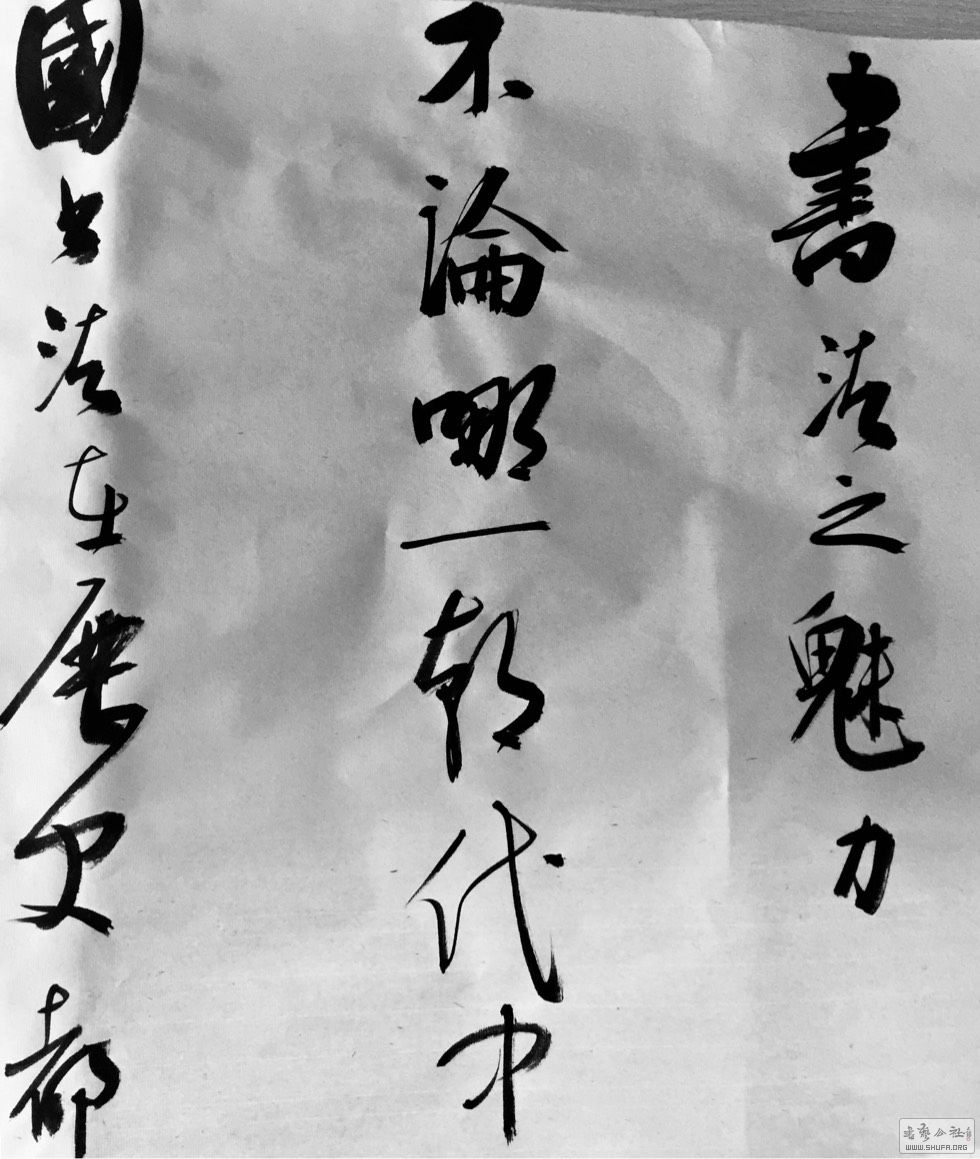 書法之魅力
不論哪一朝代中
國书法在歷史都
书艺公社
WWW.SHUFA.ORG